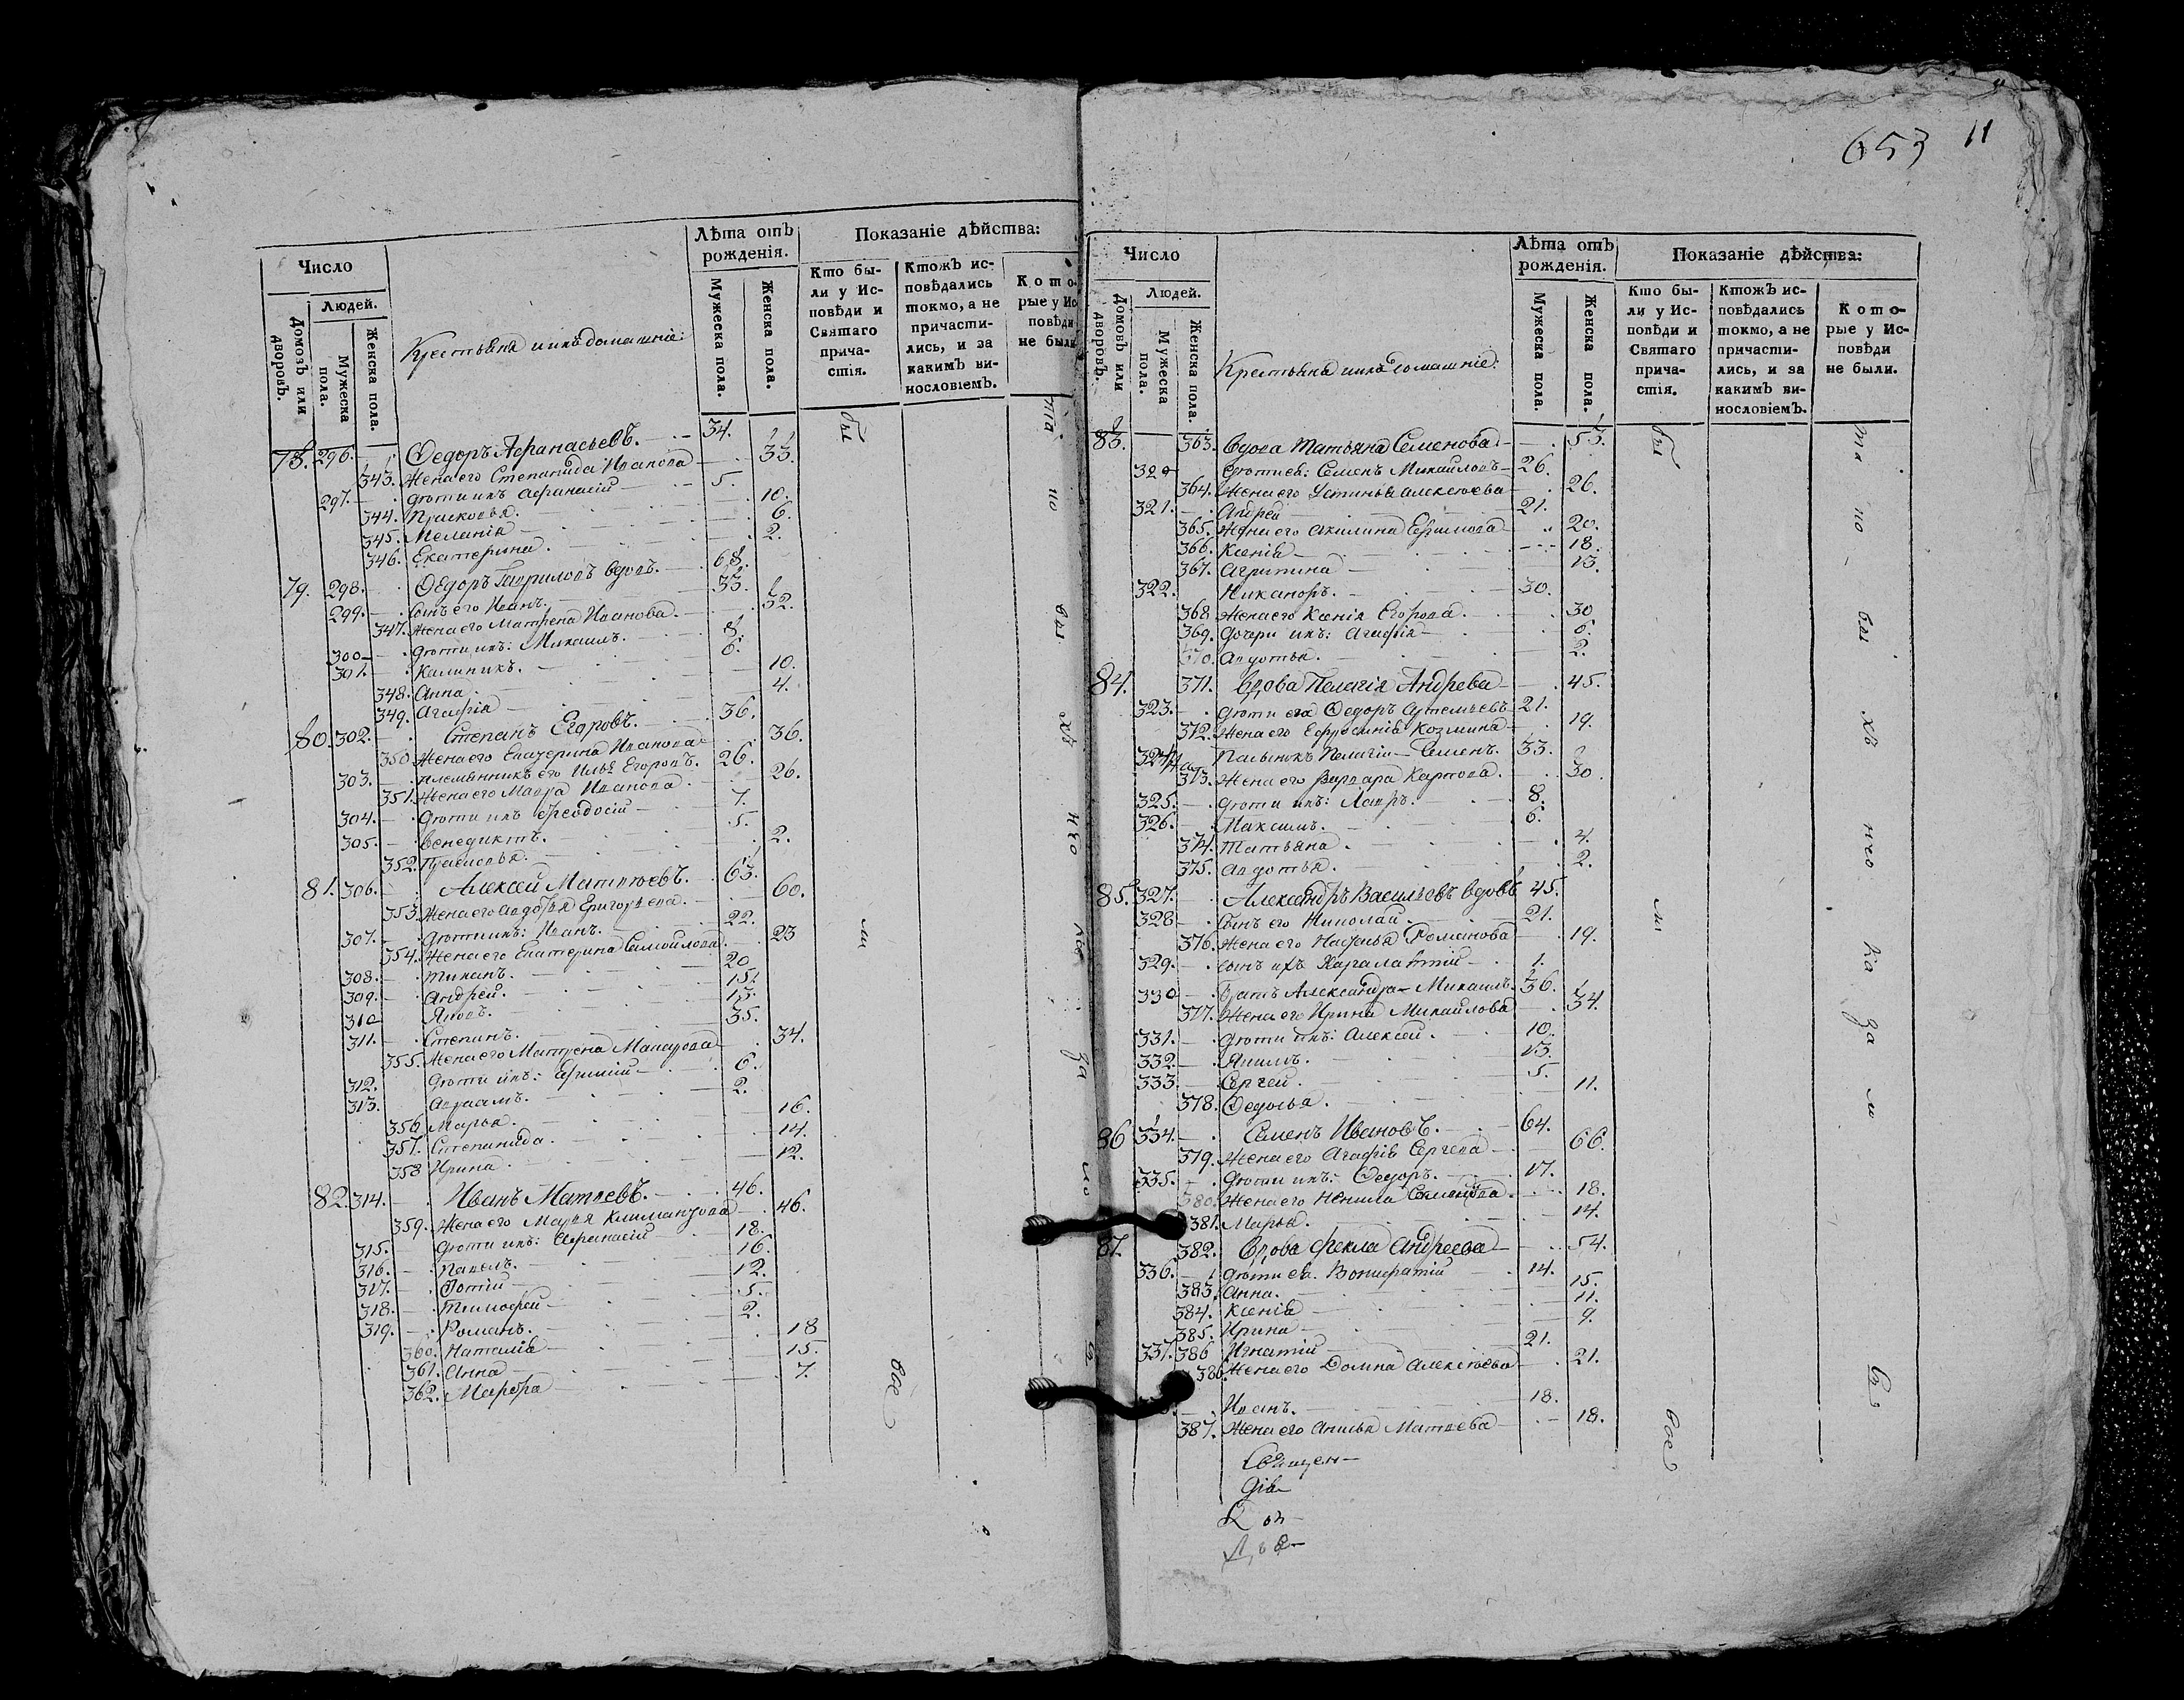 653 11
Число
Людей.
Домовъ или дворовъ.
Мужеска пола.
Женска пола.
Крестьяня и ихъ домашніе:
Лѣта отъ рожденія.
Мужеска пола.
Женска пола.
Показаніе дѣйства:
Кто были у Исповѣди и Святаго причастія.
Ктожъ исповѣдались токмо, а не причастились, и за какимъ винословіемъ.
Которые у Исповѣди не были
78. 296. Ѳедоръ Афанасьевъ. 34.
343. Жена его Степанида Иванова 33.
297. Дѣти ихъ Афанасій 5.
344. Прасковья. 10.
345. Меланія 6.
346. Екатерина. 2.
79. 298. Ѳедоръ Гавриловъ вдовъ. 68.
299. Сынъ его Иванъ. 33.
347. Жена его Матрена Иванова. 32.
300. Дѣти ихъ: Михаилъ. 8.
301. Калиникъ. 6.
348. Анна. 10.
349. Агафія 4.
80. 302. Степанъ Егоровъ. 36.
350. Жена его Екатерина Иванова 36.
303. племянникъ его Илья Егоровъ. 26.
351. Жена его Мавра Иванова. 26.
304. Дѣти ихъ Феодосій 7.
305. Венедиктъ. 5.
352. Прасковья. 2.
81. 306. Алексей Матвѣевъ. 63.
353. Жена его Авдотья Григорьева. 60.
307. Дѣти ихъ: Иванъ. 22.
354. Жена его Екатерина Самойлова. 23
308. Тиханъ. 20
309. Андрей. 15.
310 Яковъ. 13.
311. Степанъ. 35.
355. Жена его Матрена Макарова 34.
312. Дѣти ихъ: Ефимій 6.
313. Авраамъ. 2.
356. Марья. 16.
357. Степанида. 14.
358 Ирина. 12.
82. 314. Иванъ Матвевъ. 46.
359. Жена его Марья 46.
315. Дѣти ихъ: Афанасій 18.
316. Павелъ. 16.
317. Фотій 12.
318. Тимофей 5.
319. Романъ. 2.
360. Наталія 18
361. Анна 15.
362. Марфа 7.
бы ли все
та по вы хъ нѣо ка за мо въ
Число
Людей.
Домовъ или дворовъ.
Мужеска пола.
Женска пола.
Крестьяня и ихъ домашніе:
Лѣта отъ рожденія.
Мужеска пола.
Женска пола.
Показаніе дѣйства:
Кто были у Исповѣди и Святаго причастія.
Ктожъ исповѣдались токмо, а не причастились, и за какимъ винословіемъ.
Которые у Исповѣди не были.
83. 363. Вдова Татьяна Семенова 53.
320 Дѣти ея: Семенъ Михайловъ 26.
364. Жена его Устинья Алексѣева 26.
321. Андрей 21.
365. Жена его Акилина Ефимова 20.
366. Ксенія 18.
367. Агрипина 13.
322. Никаноръ. 30.
368 Жена его Ксенія Егорова. 30
369. Дочери ихъ: Агафія 6.
370. Авдотья. 2.
84. 371. Вдова Пелагія Андрева 45.
323. Дѣти ея Ѳедоръ Артемьевъ 21.
372. Жена его Ефросинія Козмина 19.
324. Пасынокъ Пелагіи Семенъ. 33.
373. Жена его Варвара Карпова. 30.
325. Дѣти ихъ: Лавръ. 8.
326. Максимъ. 6.
374. Татьяна. 4.
375. Авдотья. 2.
85. 327. Александръ Васильевъ вдовъ 45.
328 Сынъ его Николай. 21.
376. Жена его Романова 19.
329. сынъ ихъ Харалампій 1.
330 Братъ Александра Михаилъ. 36.
377. Жена его Ирина Михайлова 34.
331. Дѣти ихъ: Алексей. 10.
332. Якимъ. 13.
333. Сергей. 5.
378. Ѳедосья. 11.
86 334. Семенъ Ивановъ. 64.
379. Жена его Агафія Сергева 66.
335. Дѣти ихъ: Ѳедоръ. 17.
380. Жена его Ненила Семенова. 18.
381. Марья. 14.
87. 382. Вдова Фекла Андреева 54.
336. Дѣти ея. Вонифатій 14.
383. Анна. 15.
384. Ксенія 11.
385. Ирина 9.
337. 386 Игнатій 21.
386. Жена его Домна Алексѣева 21.
Иванъ. 18.
387. Жена его Анисья Матвева 18.
бы ли все
та по вы хъ нѣо ка за мо въ
Священ-
Діа-